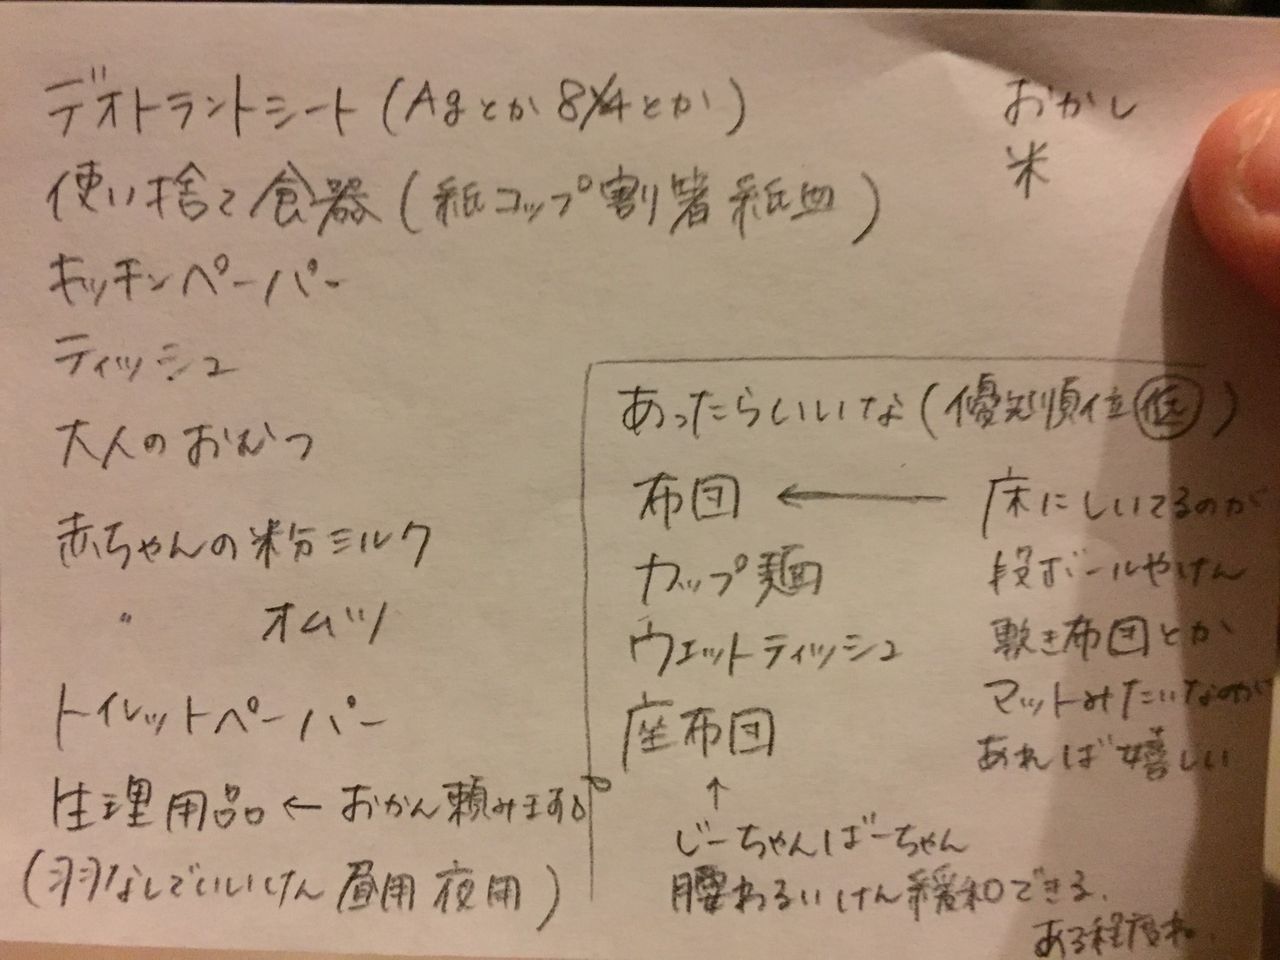 デオトラントシート(Agとか8/4とか)
使い捨て食器(紙コップ割り箸紙皿)
キッチンペーパー
ティッシュ
大人のおむつ
赤ちゃんの粉ミルク
〃 オムツ
トイレットペーパー
生理用品←おかん頼みます。
(羽なしでいいけん昼用夜用)
おかし
米
あったらいいな(優先順位低)
布団 ←
カップ麺
ウェットティッシュ
座布団
↑
じーちゃんばーちゃん
腰わるいけん緩和できる.
ある程度ね.
床にしいてるのが
段ボールやけん
敷き布団とか
マットみたいなのが
あれば嬉しい